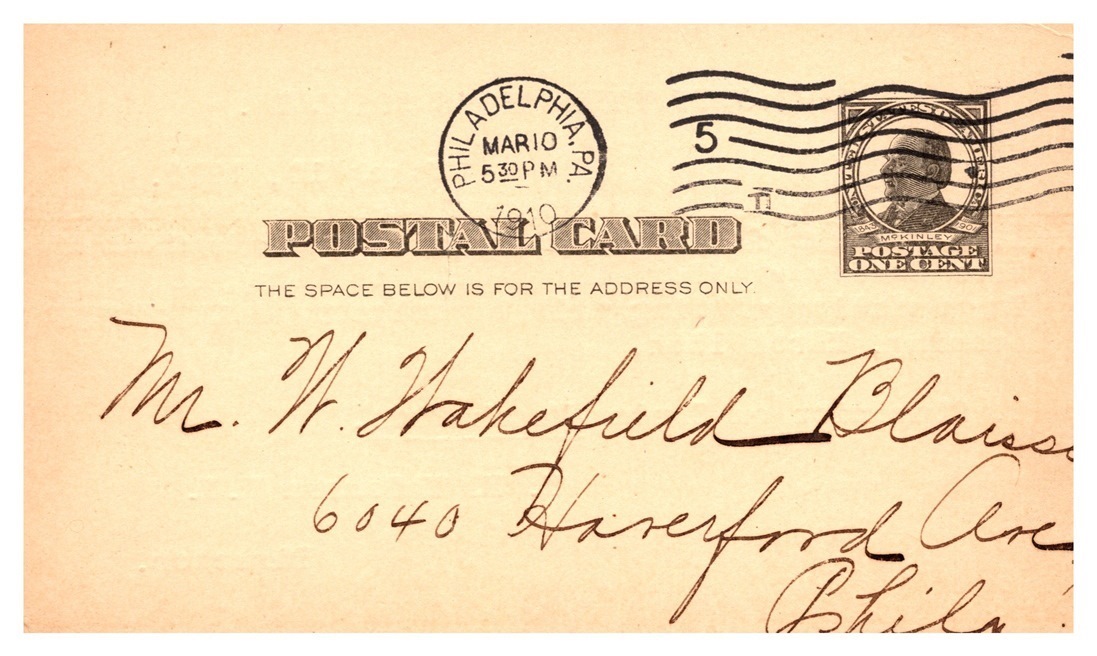 PHILADELPHIA, PA.
MAR 10
5 30 PM
1910
5
UNITED STATES OF AMERICA
1843 1901
McKINLEY
POSTAGE
ONE CENT
POSTAL CARD
THE SPACE BELOW IS FOR THE ADDRESS ONLY.
Mr. W. Wakefield
6040 Haverford Ave
Phila